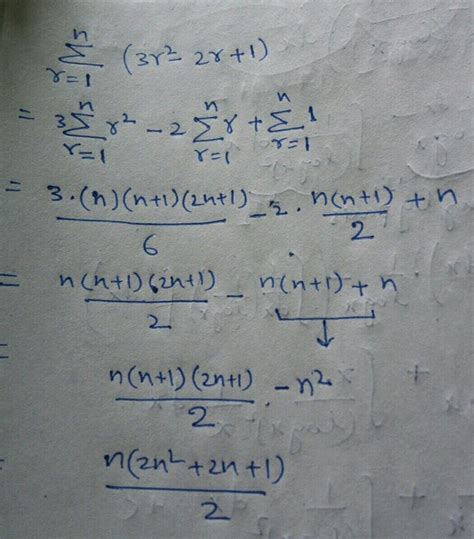 n
∑ (3r² - 2r + 1)
r=1
= 3 n∑r=1 r² - 2 n∑r=1 r + n∑r=1 1
= 3·(n)(n+1)(2n+1)/6 - 2· n(n+1)/2 + n
= n(n+1)(2n+1)/2 - n(n+1) + n
↓
= n(n+1)(2n+1)/2 - n²
n(2n² + 2n + 1)/2